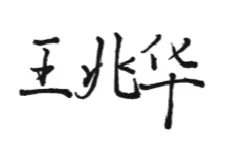 王兆华